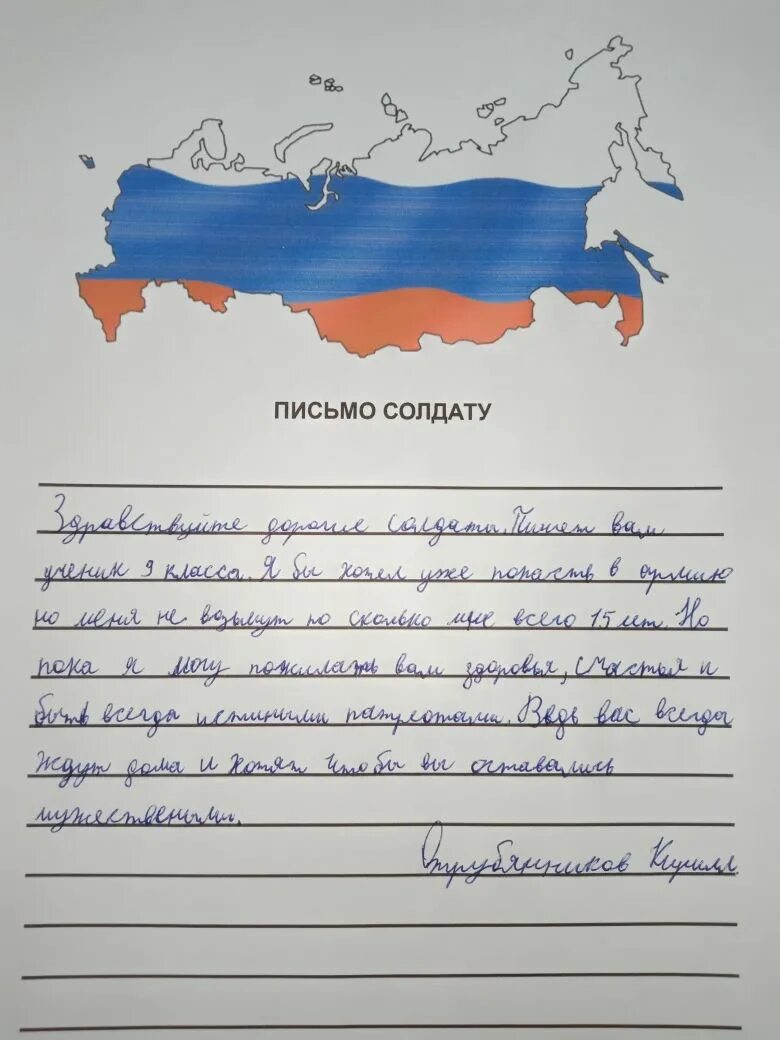 ПИСЬМО СОЛДАТУ
Здравствуйте дорогие солдаты. Пишет вам
ученик 9 класса. Я бы хотел уже попасть в армию
но меня не возьмут по сколько мне всего 15 лет. Но
пока я могу пожилать вам здоровья, счастья и
быть всегда истиными патреотами. Ведь вас всегда
ждут дома и хотят чтобы вы оставались
мужествеными.
Отрубянников Кирилл